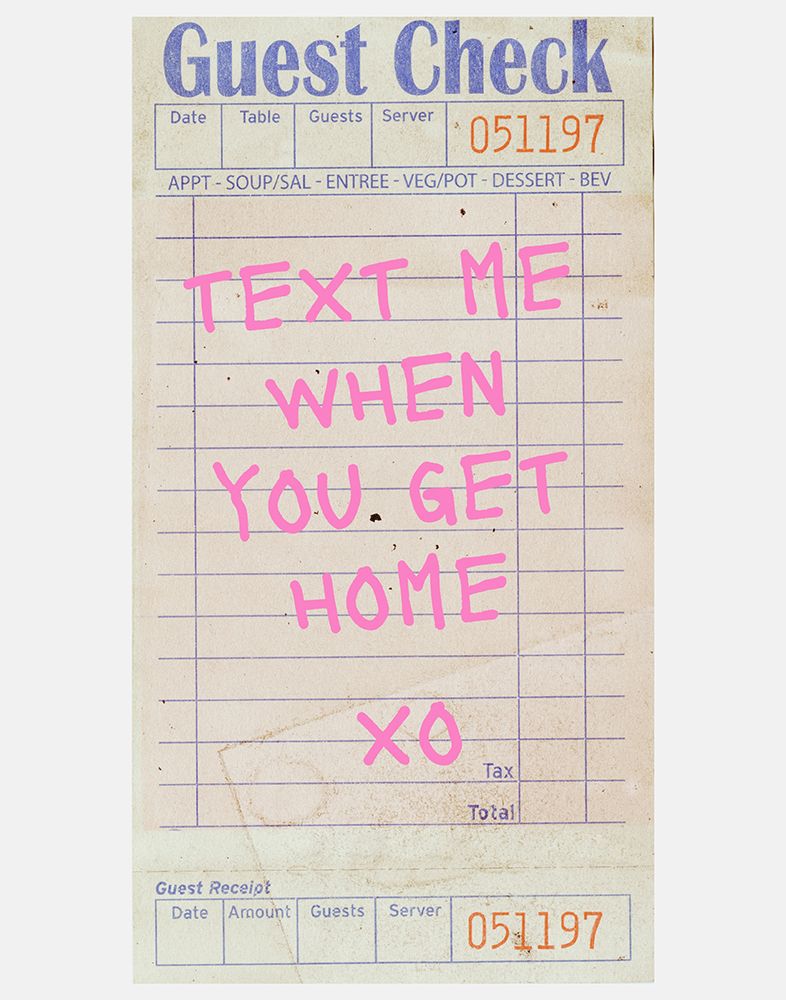 Guest Check
Date Table Guests Server 051197
APPT - SOUP/SAL - ENTREE - VEG/POT - DESSERT - BEV
TEXT ME
WHEN
YOU GET
HOME
XO
Tax
Total
Guest Receipt
Date Amount Guests Server 051197